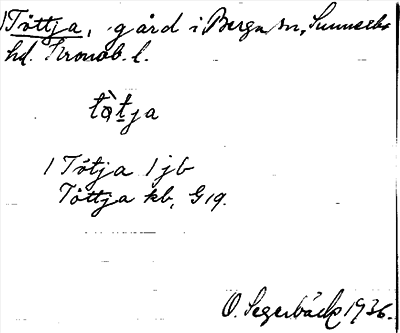 Töttja, gård i Berga sn, Sunnerbo
hd. Kronob. l.
tö̀tja
/ Tötja / jb
Töttja kb, G 19.
O. Segerbäck 1936.